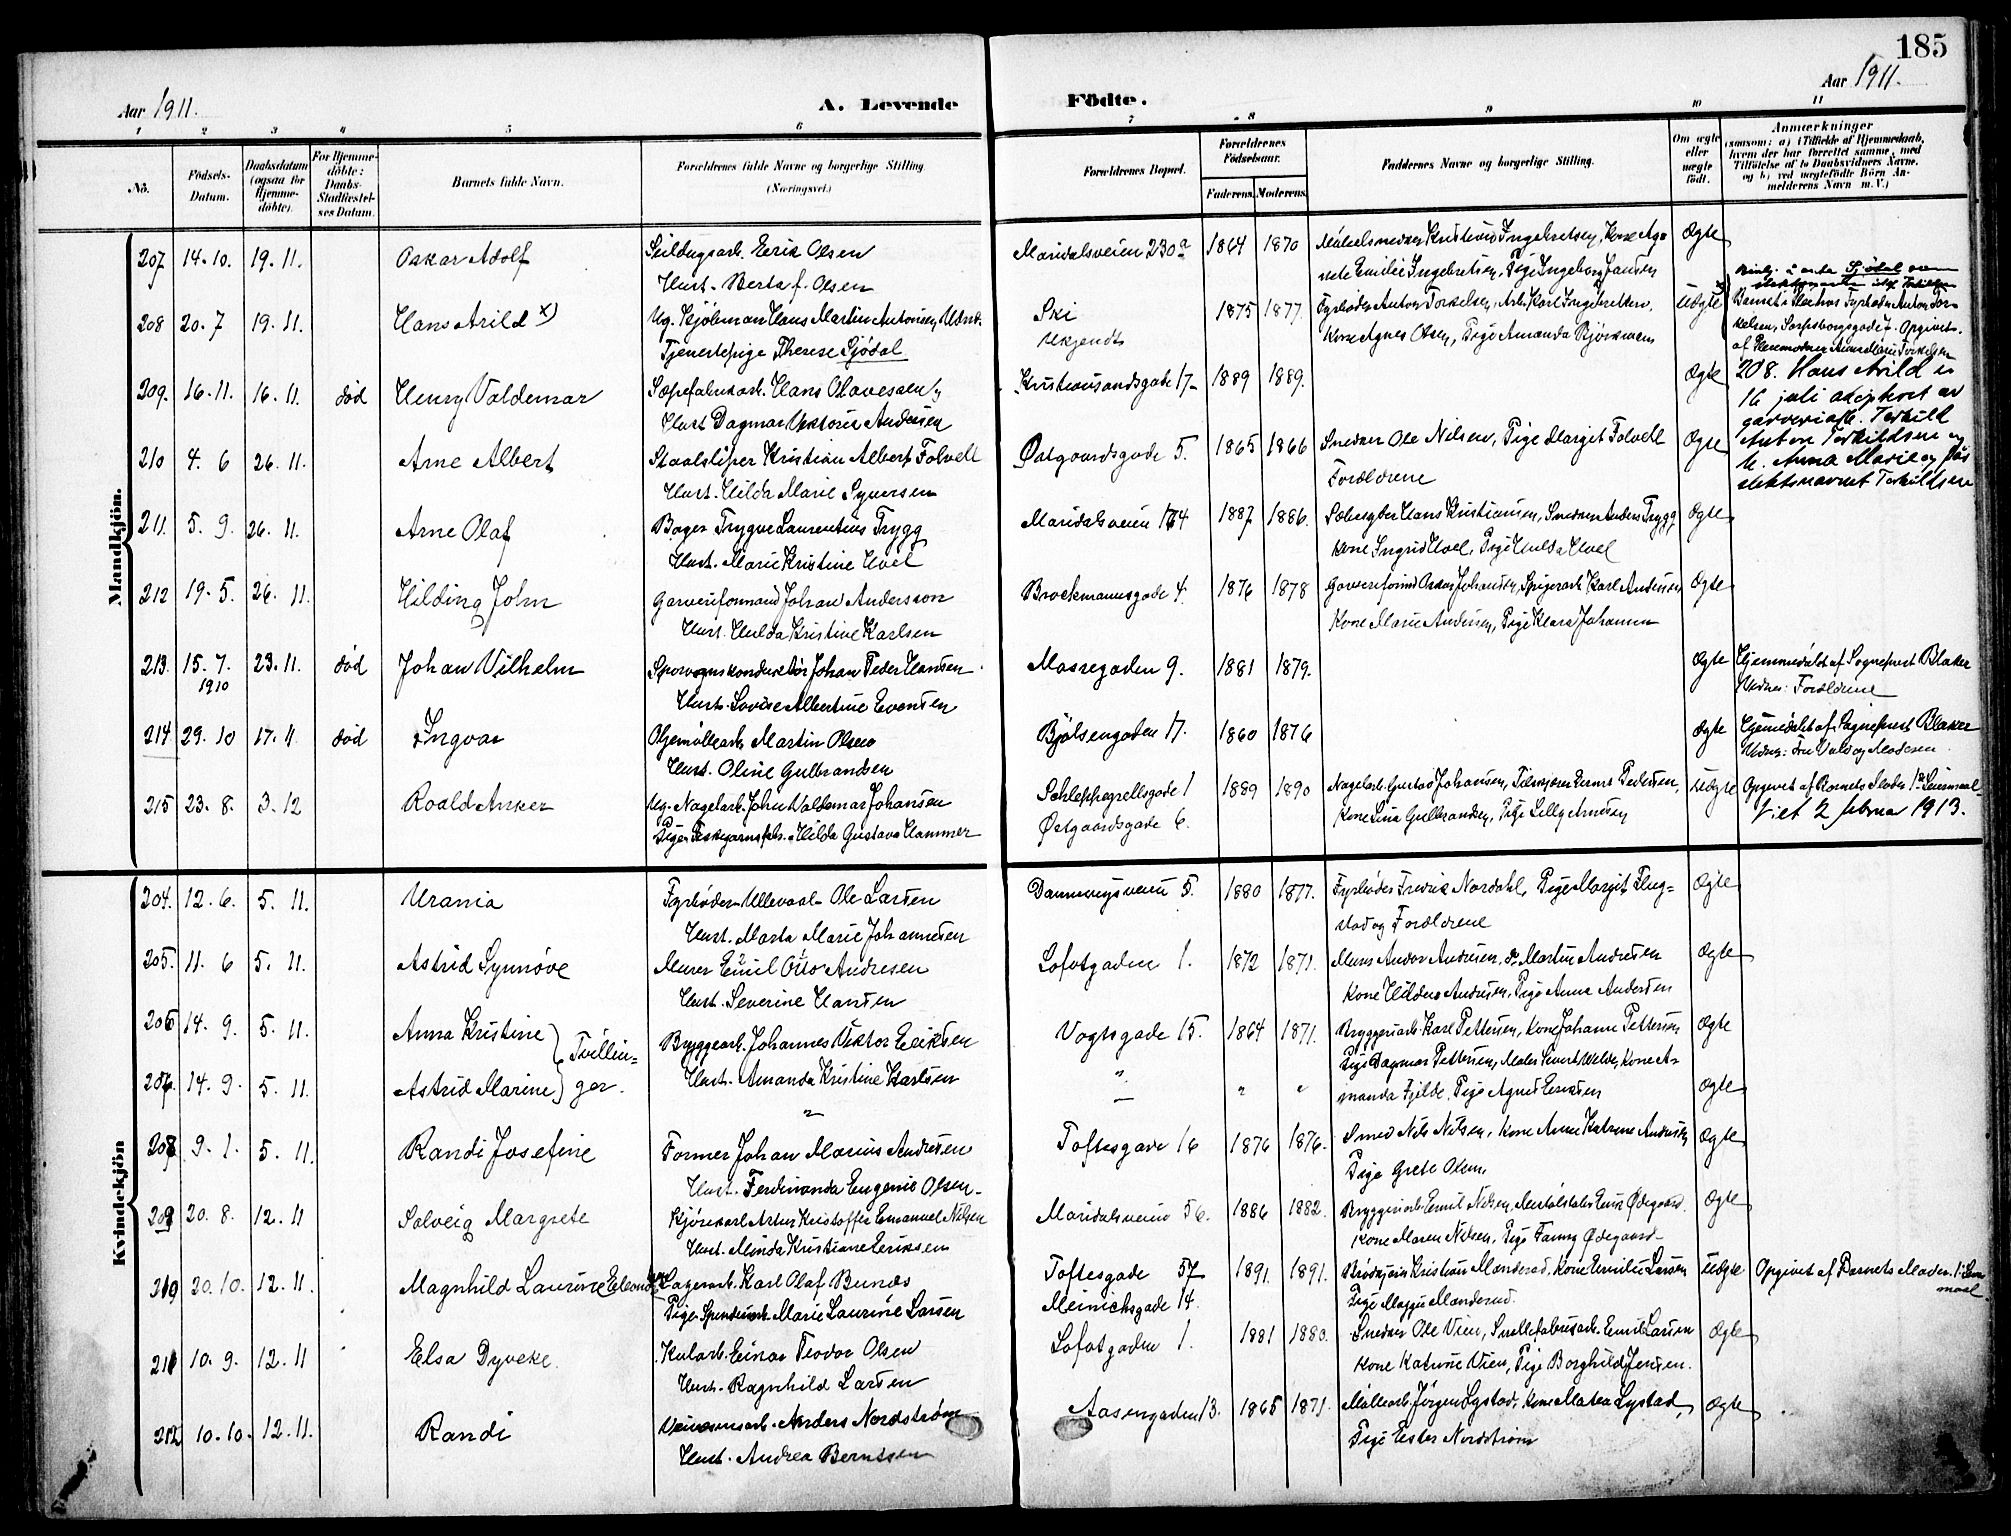 185
Aar 1911.
A. Levende
Födte.
Aar 1911.
1 2 3 4 5 6 7 8 9 10 11
No.
Födsels-Datum.
Daabsdatum (ogsaa for Hjemme-döbte).
For Hjemme-döbte: Daabs-Stadfæstel-ses Datum.
Barnets fulde Navn.
Forældrenes fulde Navne og borgerlige Stilling. (Næringsvei.)
Forældrenes Bopæl.
Forældrenes Födselsaar.
Faderens. Moderens.
Faddernes Navne og borgerlige Stilling.
Om ægte eller uægte födt.
Anmærkninger
(saasom: a) i Tilfælde af Hjemmedaab, hvem der har forrettet samme, med Tilföielse af to Daabsvidners Navne. og b) ved uægtefödte Börn An-melderens Navn m. V.)
Mandkjön.
207 14.10. 19.11. Oskar Adolf Erik Olsen Maridalsveien 230a 1864 1870 Kristian Ingebretsen, Kone Ag-
Hust. Berta Olsen Emilie Ingebretsen, Pige Ingeborg Jansen Ægte
208 20.7 19.11. Hans Arild x) Ug. Kjöbmand Hans Martin Antonsen Ski 1875 1877 Fyrböder Anton Torkelsen, Arb. Karl Ingebretsen, Uægte
Tjenestepige Therese Sjödal ukjendt Kone Agnes Olsen, Pige Amanda Björkmann
Barnet i Fyrböder Anton Tor-
kelsen, Sarpsborggade 7. Opgivet
af Anna Marie Torkelsen
209. 16.11. 16.11. död Henry Valdemar Sæpefabrikarb. Hans Olavesen Kristiansandsgade 17 1889 1889. Ægte
Hust. Dagmar Viktoria Andersen
208. Hans Arild er
16 juli adoptert av
garveriarb. Terkild
Anton Terkildsen og
h. Anna Marie og
slektsnavnet Terkildsen
210 4.6 26.11. Arne Albert Staalsliper Kristian Albert Folvell Østgaardsgade 5. 1865 1866 Snedker Ole Nilsen, Pige Margit Folvell Ægte
Hust. Hilda Marie Syversen Forældrene
211. 5.9. 26.11. Arne Olaf Bager Trygve Laurentius Trygg Maridalsveien 174 1887 1886. Hans Kristiansen, Snedker Anders Trygg Ægte
Hust. Marie Kristine Hoel Kone Ingrid Hoel, Pige Hulda Hoel
212 19.5. 26.11. Hilding John Garveriformand Johan Andersson Brockmannsgade 4. 1876 1878 Garveriformd Oskar Johansen, Spigerarb Karl Andersen Ægte
Hust. Hulda Kristine Karlsen Kone Marie Andersen, Pige Klara Johansen
213. 15.7. 1910 23.11. död Johan Vilhelm Sporvognskonduktör Johan Peder Hansen Mossegaden 9. 1881 1879. Ægte Hjemmedöbt af Sogneprest Blaker
Hust. Lovise Albertine Evensen Vidner: Forældrene
214 29.10 17.11 död Ingvar Oljemöllearb. Martin Olsen Bjölsengaden 17. 1860 1876 Ægte Hjemmedöbt af Sogneprest Blaker
Hust. Oline Gulbrandsen
215 23.8. 3.12 Roald Anker Ug. Nagelarb. John Valdemar Johansen Schleppegrellsgade 1 1889 1890 Nagelarb. Gustav Johansen, Pedersen, Uægte Opgivet af Barnets Moder 1ste Leiermaal
Pige Hilda Gustava Hammer Østgaardsgade 6. Kone Lina Gulbrandsen, Pige Lilly Arntsen Viet 2 februar 1913.
Kvindekjön
204. 12.6. 5.11. Urania Fyrböder Ullevaal Ole Larsen Dannevigsveien 5. 1880 1877. Fyrböder Fredrik Nordahl, Pige Margit Flug-
Hust. Marta Marie Johannesen stad og Forældrene Ægte
205. 11.6 5.11. Astrid Synnöve Murer Emil Otto Andresen Lofotgaden 1. 1872 1871. Murer Andor Andresen, do Martin Andresen Ægte
Hust. Severine Hansen Kone Hilda Andresen, Pige Anna Andersen
206 14.9. 5.11. Anna Kristine } Tvillin- Bryggearb. Johannes Viktor Eriksen Vogtsgade 15. 1864 1871. Bryggeriarb. Karl Pettersen, Kone Johanne Pettersen Ægte
Hust. Amanda Kristine Karlsen Pige Dagmar Pettersen, Maler Sivert Velde, Kone A-
207. 14.9. 5.11. Astrid Marine } ger. " " " manda Fjelde, Pige Agnes Eriksen Ægte
208 9.1. 5.11. Randi Josefine Former Johan Marius Andresen Toftesgade 16 1876 1876. Smed Nils Nilsen, Kone Anne Katrine Andresen Ægte
Hust. Ferdinanda Eugenie Olsen Pige Grete Olsen
209 20.8. 12.11 Solveig Margrete Kjörekarl Artur Kristoffer Emanuel Nilsen Maridalsveien 56. 1886 1882. Bryggeriarb Emil Nilsen, Einar Ødegaard Ægte
Hust. Minda Kristiane Eriksen Kone Maren Nilsen, Pige Fanny Ødegaard
210 20.10. 12.11. Magnhild Laurine Eleonore Lagerarb. Karl Olaf Bunæs Toftesgade 57 1891. 1891. Kristian Manderud, Kone Emilie Larsen Uægte Opgivet af Barnets Moder. 1. Leier-
Pige Spinderiarb. Marie Laurine Larsen Meinichsgade 14. Pige Maggie Manderud. maal
211 10.9. 12.11 Elsa Dyveke. Kularb. Einar Teodor Olsen Lofotgaden 1. 1881 1880. Snedker Ole Vien, Emil Larsen Ægte
Hust. Ragnhild Larsen Kone Katrine Vien, Pige Borghild Jensen.
212 10.10. 12.11. Randi Anders Nordström Aasengaden 13. 1865 1871. Möllearb. Jörgen Lystad, Kone Matea Lystad, Ægte
Hust. Andrea Berntsen Pige Ester Nordström